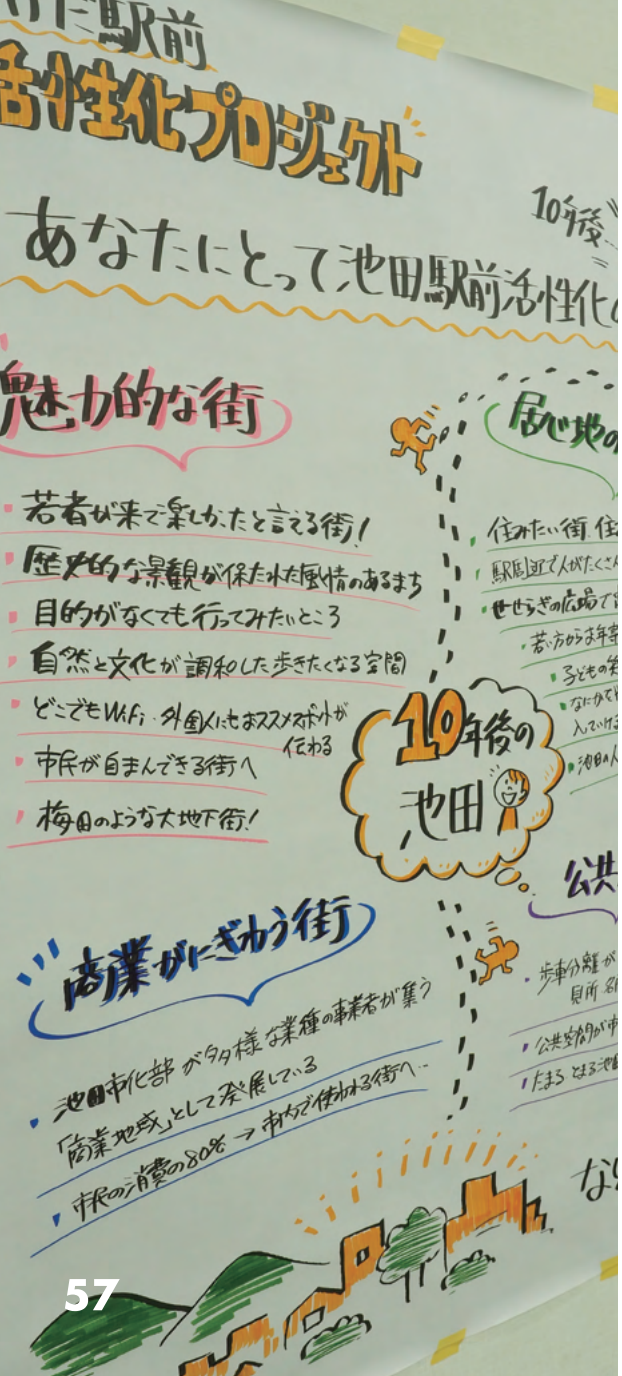 けだ駅前
活性化プロジェクト
10年後
あなたにとって池田駅前活性化
魅力的な街
若者が来て楽しかったと言える街!
歴史的な景観が保たれた風情のあるまち
目的がなくても行ってみたいところ
自然と文化が調和した歩きたくなる空間
どこでもWiFi・外国人にもおススメスポットが
伝わる
市民が自まんできる街へ
梅田のような大地下街!
居心地の
住みたい街、住
駅周辺で人がたくさん
せせらぎの広場で
若い方からお年寄
子どもの笑
なにかで
入っていける
池田の人
10年後の
池田
商業がにぎわう街
池田市北部が多様な業種の事業者が集う
「商業地域」として発展している
市民の消費の80% → 市内で使われる街へ…
公共
歩車分離が
公共空間が市
たまる とまる池田
57